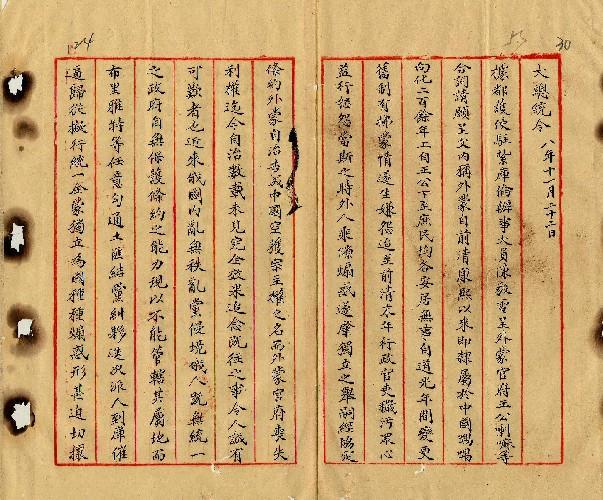 30
大總統令 八年十一月二十二日
據都護使駐紮庫倫辦事大員陳毅電呈外蒙官府王公喇嘛等
合詞請願呈文內稱外蒙自前清康熙以來即隸屬於中國喁喁
向化二百餘年上自王公下至庶民均各安居無事自道光年間變更
舊制有拂蒙情遂生嫌怨迨至前清末年行政官吏穢污眾心
益行怨怒當斯之時外人乘隙煽惑遂肇獨立之舉嗣經協定
條約外蒙自治告成中國空獲宗主權之名而外蒙官府喪失
利權迄今自治數載未見完全效果追念既往之事令人誠有
可歎者也近來俄國內亂無秩亂黨侵境俄人既無統一
之政府自無保護條約之能力現以不能管轄其屬地而
布里雅特等任意勾通土匪結黨糾夥迭次派人到庫催
逼歸從擬行統一全蒙獨立為國種種煽惑形甚迫切攘
24